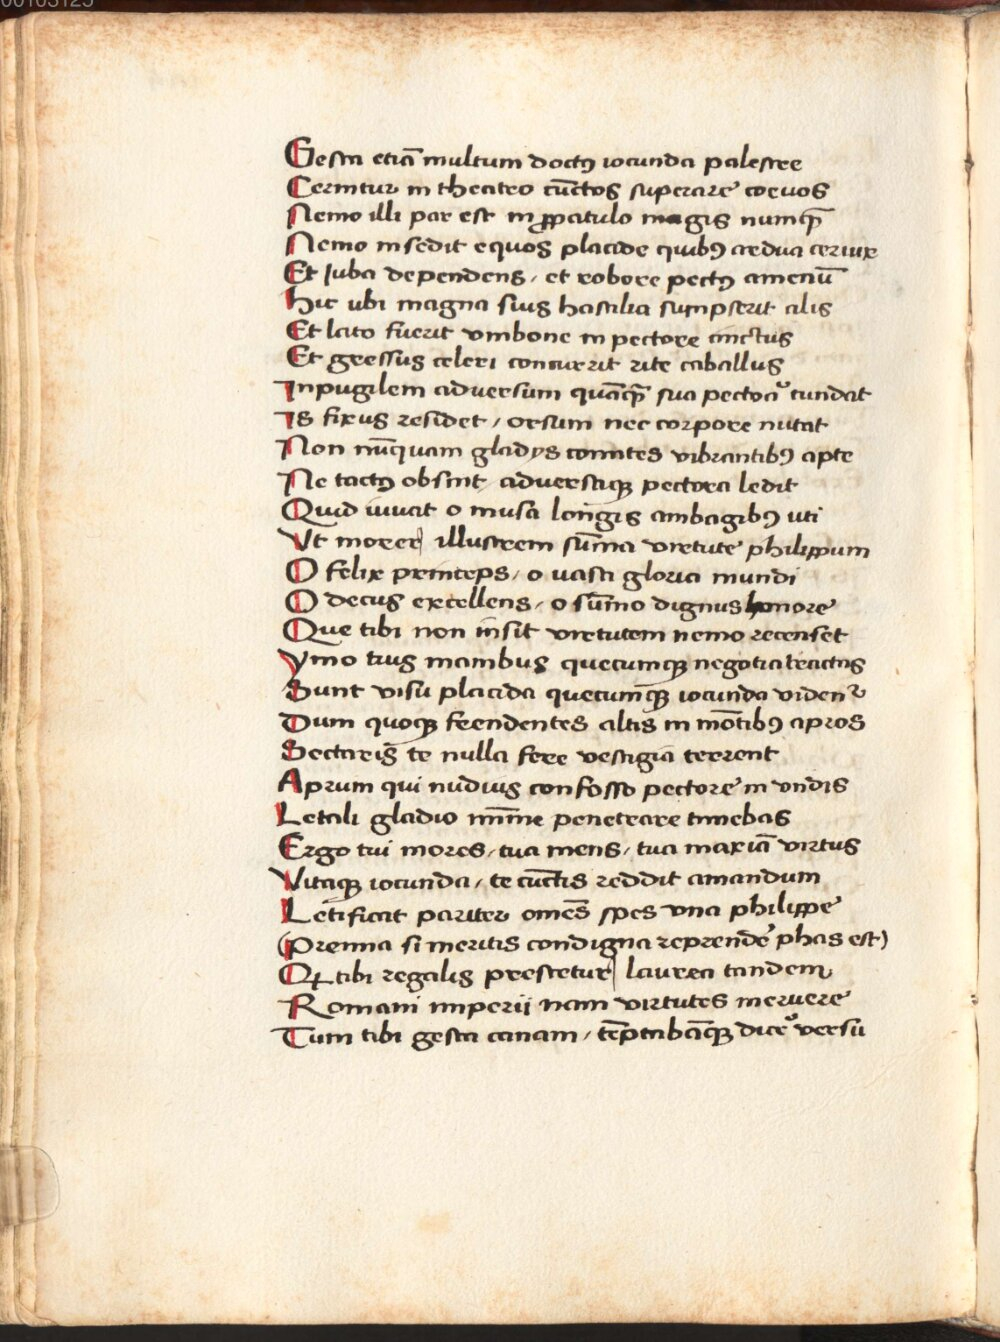 Gesta etiā multum doctꝰ iocunda palestre
Cernitur in theatro cūctos superare coeuos
Nemo illi par est in ꝓpatulo magis numqᷓ
Nemo insedit equos placide quibꝰ ardua ceruix
Et iuba dependens / et robore pectꝰ amenū
Hic ubi magna suis hastilia sumpserit alis
Et lato fuerit vmbone in pectore cinctus
Et gressus celeri concurrit rite caballus
Inpugilem aduersum quāqᷓ sua pectora tundat
Is fixus residet / orsum nec corpore nutat
Non nūquam gladys comites vibrantibꝰ apte
Ne tactꝰ obsint aduersaqꝫ pectora ledit
Quid iuuat o musa longis ambagibꝰ uti
Vt morer illustrem sūma virtute philippum
O felix princeps / o uasti gloria mundi
O decus excellens / o sūmo dignus honore
Que tibi non insit virtutem nemo recenset
Ymo tuis manibus quecumqꝫ negotia tractas
Sunt visu placida quecumqꝫ iocunda videnꝛ
Dum quoqꝫ frendentes altis in mōtibꝰ apros
Sectaris te nulla fere vestigia terrent
Aprum qui nudius confosso pectore in vndis
Letali gladio mīme penetrare timebas
Ergo tui mores / tua mens / tua maxīa virtus
Vitaqꝫ iocunda / te cūctis reddit amandum
Letificat pariter omēs spes vna philippe
(Premia si meritis condigna reprendē phas est)
Qꝫ tibi regalis prestetur laurea tandem
Romani imperii nam virtutes meruere
Tum tibi gesta canam / tēptabāqꝫ dicē versu